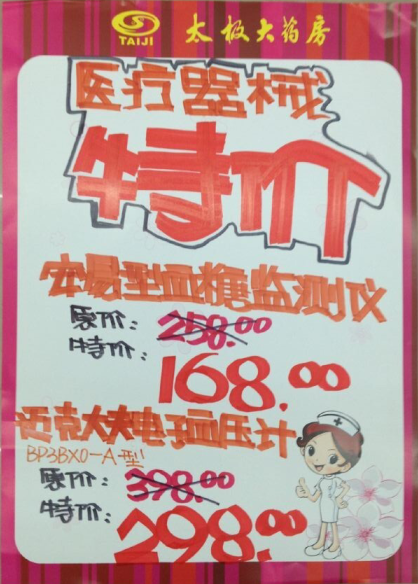 TAIJI 太极大药房
医疗器械
特价
安易型血糖监测仪
原价: 258.00
特价: 168.00
迈克大夫电子血压计
BP3BX0-A型
原价: 398.00
特价: 298.00